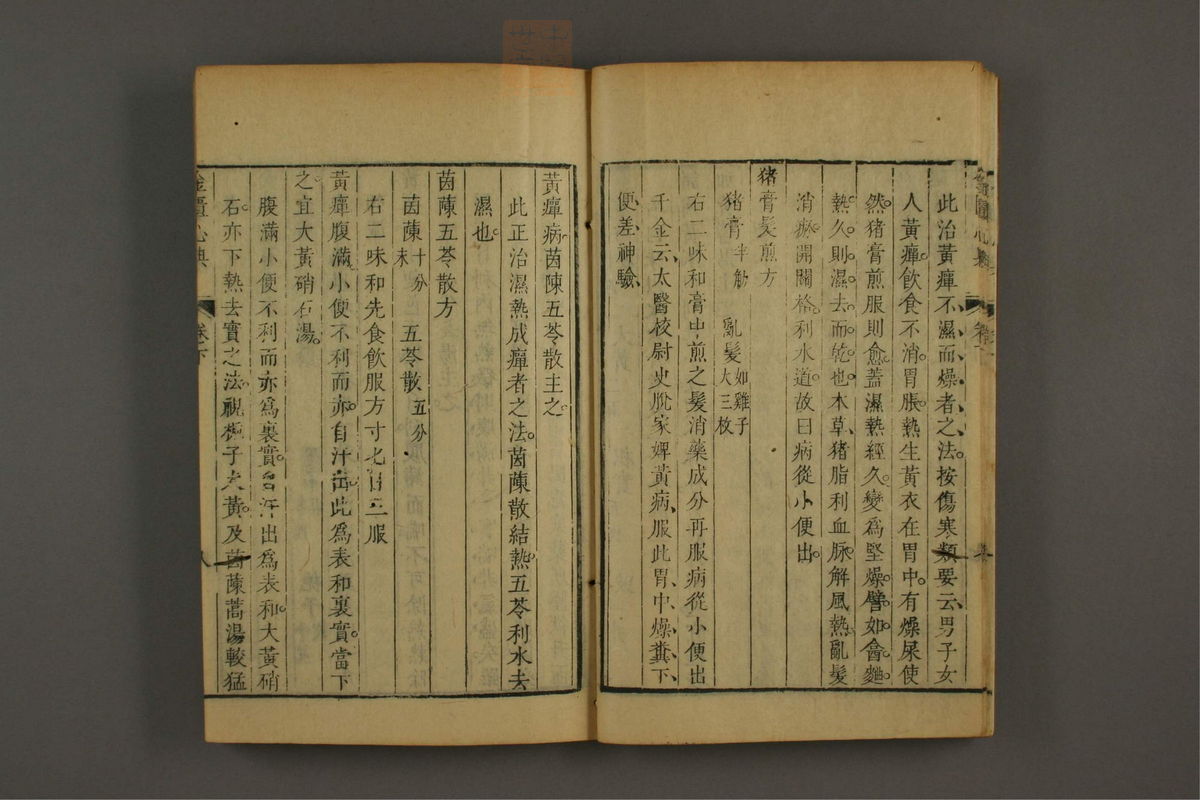 此治黃癉不濕而燥者之法按傷寒類要云男子女
人黃癉飲食不消胃脹熱生黃衣在胃中有燥屎使
然猪膏煎服則愈蓋濕熱經久變爲堅燥譬如㑹麯
熱久則濕去而乾也本草猪脂利血脉解風熱亂髮
消瘀開關格利水道故曰病從小便出
猪膏髮煎方
猪膏半觔 亂髮如雞子大三枚
右二味和膏中煎之髮消藥成分再服病從小便出
千金云太醫校尉史脫家婢黃病服此胃中燥糞下
便差神驗
黃癉病茵陳五苓散主之
此正治濕熱成癉者之法茵蔯散結熱五苓利水去
濕也
茵蔯五苓散方
茵蔯十分末 五苓散五分
右二味和先食飲服方寸匕日三服
黃癉腹滿小便不利而赤自汗出此爲表和裏實當下
之宜大黃硝石湯
腹滿小便不利而赤爲裏實自汗出爲表和大黃硝
石亦下熱去實之法視梔子大黃及茵蔯蒿湯較猛
金匱心典 卷下 八